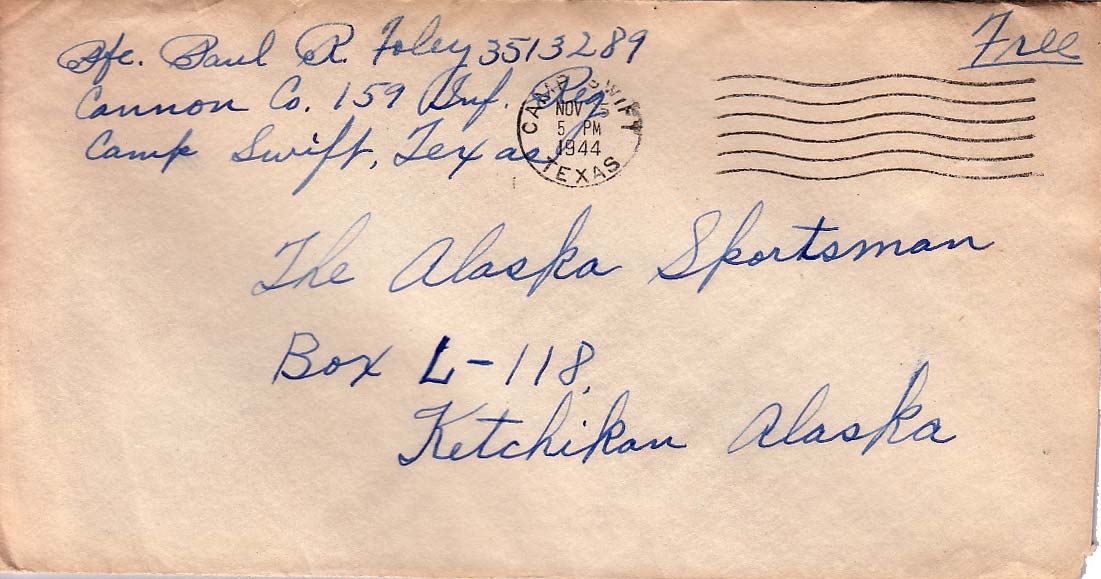 Pfc. Paul R. Foley 3513289
Free
Cannon Co. 159 Inf. Reg
Camp Swift, Texas
CAMP SWIFT
NOV 5
5 PM
1944
TEXAS
The Alaska Sportsman
Box L-118,
Ketchikan Alaska